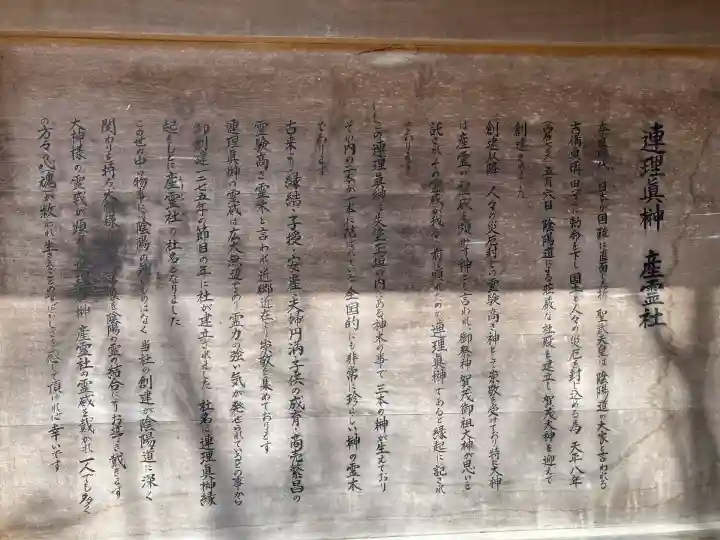 連理真榊 産霊社
日本の国難に直面した折 聖武天皇は 陰陽道の大家と言われる
吉備真備 に勅命を下し 国土と人々の災厄を封じ込める為 天平八年
五月六日 陰陽道による荘厳な社殿を建立し 賀茂大神を迎えて
創建されました
創建以降 人々の災厄封じの霊験高き神として崇敬を受けており 特に大神
は産霊の神威を頒かつ神とも言われ 御祭神 賀茂御祖大神が思いを
託され その霊威が我々の前に顕れたのが連理真榊であると縁起に記され
ております
この連理真榊は の内にある神木で 当て 三本の榊が生えており
その内の二本が一本に結ばれていて 全国的にも非常に珍らしい榊の霊木
であります
古来より縁結・子授・安産・夫婦円満・子供の成育・商売繁昌の
霊験高き霊木と言われ 近郷近在より崇敬を集めております
連理真榊の霊威は広大無辺であり 霊力の強い気が発せられているとの事から
御創建一二七五年の節目の年に社が建立されました 社名は連理真榊縁
起をもとに産霊社の社名となりました
この世の中の物事には陰陽の無いものはなく 当社の創建が陰陽道に深く
関わりを持ち 陰陽の霊の結合に
大神様の霊威が顕れた連理真榊 産霊社の霊威を戴かれ 一人でも多く
の方々の心魂が救われ 生きることのよろこびを感じて頂ければ幸いです